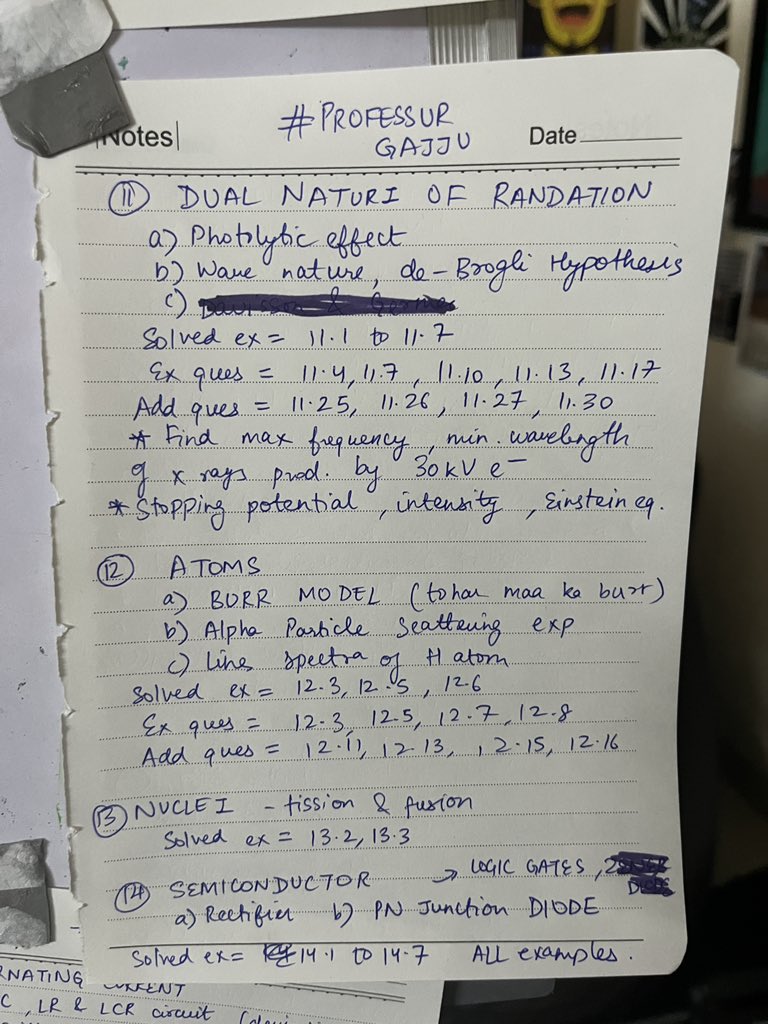 Notes
# PROFESSUR
GAJJU
Date
11 DUAL NATURI OF RANDATION
a) Photolytic effect
b) Wave nature, de-Brogli Hypothesis
c)
Solved ex = 11.1 to 11.7
Ex ques = 11.4, 11.7, 11.10, 11.13, 11.17
Add ques = 11.25, 11.26, 11.27, 11.30
* Find max frequency, min. wavelength
of x rays prod. by 30kV e-
* Stopping potential, intensity, Einstein eq.
12 ATOMS
a) BURR MODEL (tohar maa ka burr)
b) Alpha Particle Scattering exp
c) Line spectra of H atom
Solved ex = 12.3, 12.5, 12.6
Ex ques = 12.3, 12.5, 12.7, 12.8
Add ques = 12.11, 12.13, 12.15, 12.16
13 NUCLEI - fission & fusion
Solved ex = 13.2, 13.3
14 SEMICONDUCTOR → LOGIC GATES,
a) Rectifier b) PN Junction DIODE
Solved ex = 14.1 to 14.7 ALL examples.
RNATING CURRENT
C, LR & LCR circuit